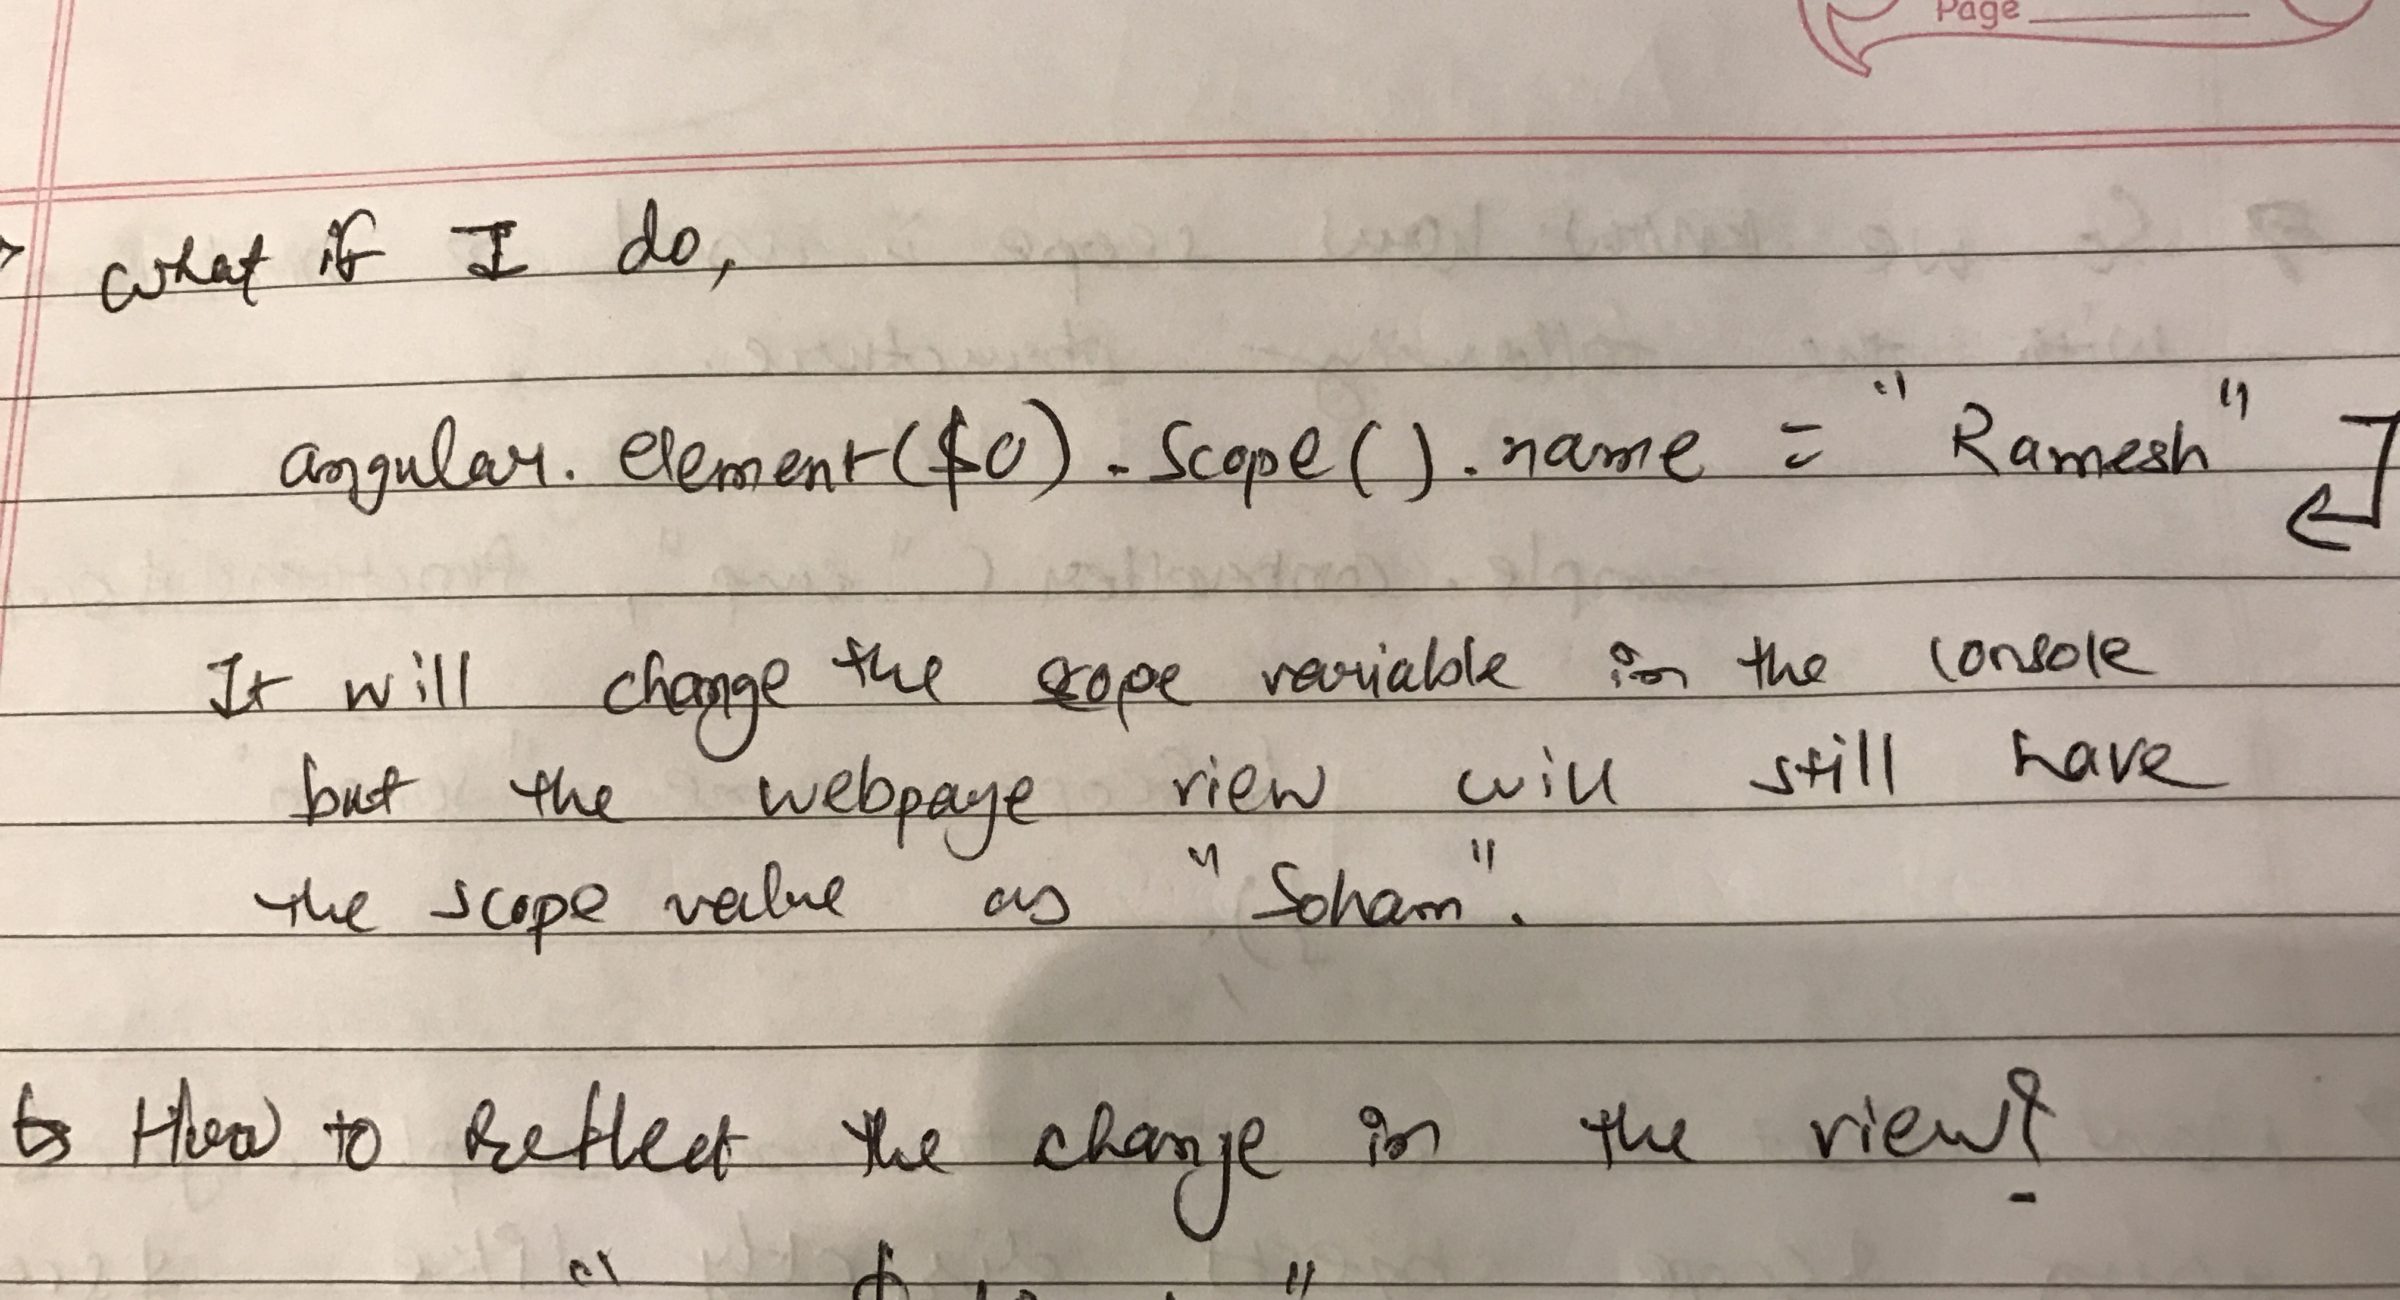 Page
what if I do,
angular. element($0). Scope().name = "Ramesh"
It will change the scope variable in the console
but the webpage view will still have
the scope value as "Soham".
How to Reflect the change in the view?